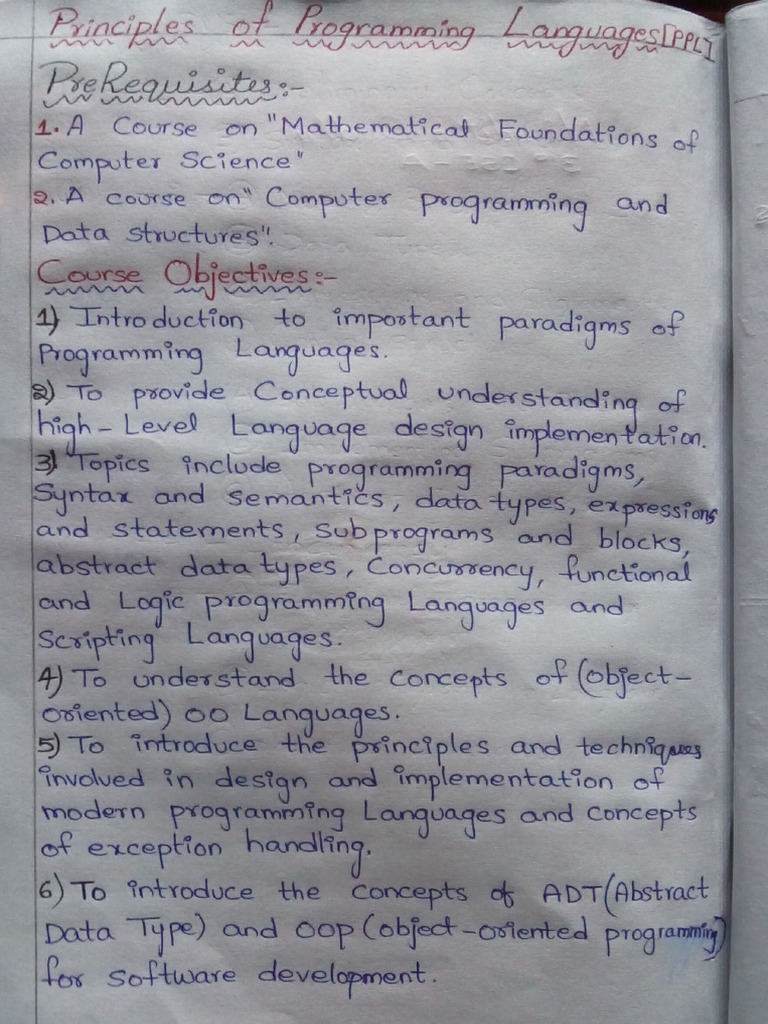 Principles of Programming Languages[PPL]
PreRequisites:-
1. A Course on "Mathematical Foundations of
Computer Science"
2. A course on "Computer programming and
Data structures".
Course Objectives:-
1) Introduction to important paradigms of
Programming Languages.
2) To provide Conceptual understanding of
high-Level Language design implementation.
3) Topics include programming paradigms,
Syntax and semantics, data types, expressions
and statements, subprograms and blocks,
abstract data types, Concurrency, functional
and Logic programming Languages and
Scripting Languages.
4) To understand the concepts of (object-
oriented) OO Languages.
5) To introduce the principles and techniques
involved in design and implementation of
modern programming Languages and concepts
of exception handling.
6) To introduce the concepts of ADT(Abstract
Data Type) and OOP (object-oriented programming)
for software development.